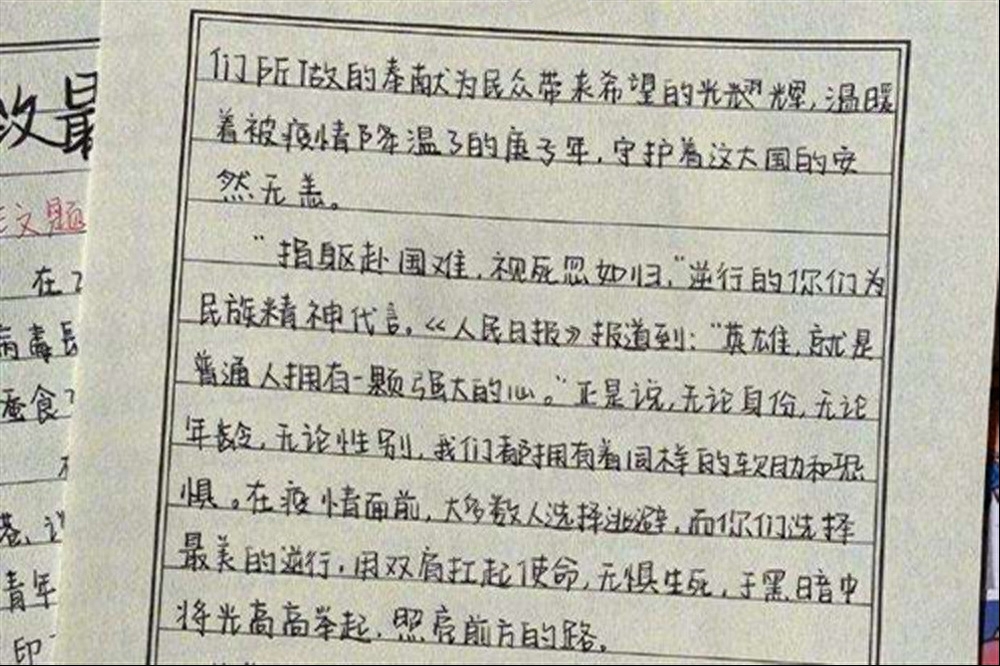 攻最
作文题
在
病毒
蚕食
青年
印
们所做的奉献为民众带来希望的光辉,温暖
着被疫情降温了的庚子年,守护着这大国的安
然无恙。
“捐躯赴国难,视死忽如归,”逆行的你们为
民族精神代言。《人民日报》报道到:“英雄,就是
普通人拥有一颗强大的心。”正是说,无论身份,无论
年龄,无论性别,我们都拥有着同样的软肋和恐
惧。在疫情面前,大多数人选择逃避,而你们选择
最美的逆行,用双肩扛起使命,无惧生死,于黑暗中
将光高高举起,照亮前方的路。